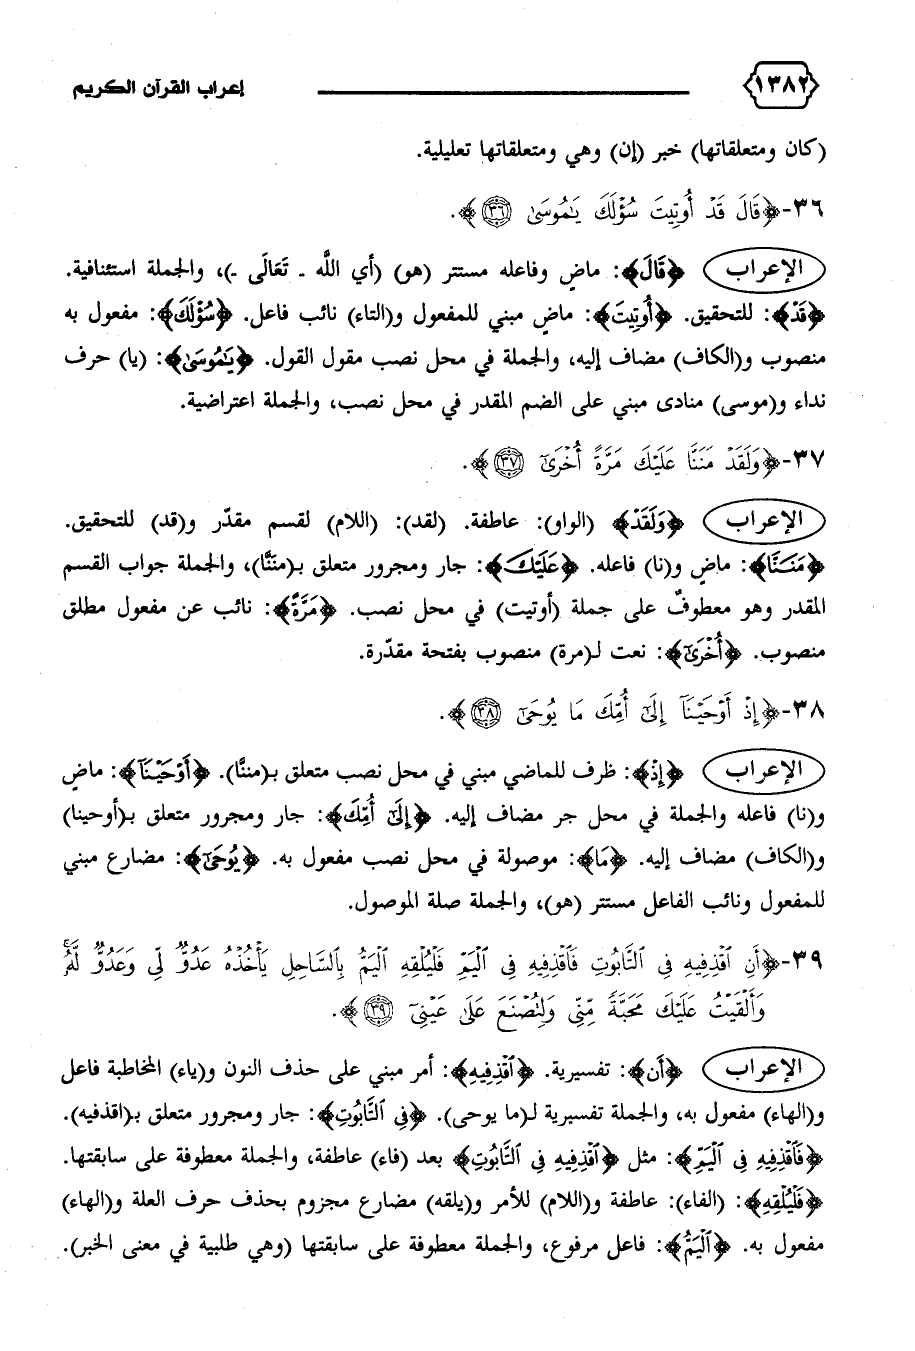 ١٣٨٢ إعراب القرآن الكريم
(كان ومتعلقاتها) خبر (إن) وهي ومتعلقاتها تعليلية.
٣٦-﴿قَالَ قَدْ أُوتِيتَ سُؤْلَكَ يَٰمُوسَىٰ ٣٦﴾.
الإعراب ﴿قَالَ﴾: ماضٍ وفاعله مستتر (هو) (أي اللَّه ـ تَعَالَى ـ)، والجملة استئنافية.
﴿قَدْ﴾: للتحقيق. ﴿أُوتِيتَ﴾: ماضٍ مبني للمفعول و(التاء) نائب فاعل. ﴿سُؤْلَكَ﴾: مفعول به
منصوب و(الكاف) مضاف إليه، والجملة في محل نصب مقول القول. ﴿يَٰمُوسَىٰ﴾: (يا) حرف
نداء و(موسى) منادى مبني على الضم المقدر في محل نصب، والجملة اعتراضية.
٣٧-﴿وَلَقَدْ مَنَنَّا عَلَيْكَ مَرَّةً أُخْرَىٰٓ ٣٧﴾.
الإعراب ﴿وَلَقَدْ﴾ (الواو): عاطفة. (لقد): (اللام) لقسم مقدّر و(قد) للتحقيق.
﴿مَنَنَّا﴾: ماضٍ و(نا) فاعله. ﴿عَلَيْكَ﴾: جار ومجرور متعلق بـ(مننَّا)، والجملة جواب القسم
المقدر وهو معطوفٌ على جملة (أوتيت) في محل نصب. ﴿مَرَّةً﴾: نائب عن مفعول مطلق
منصوب. ﴿أُخْرَىٰٓ﴾: نعت لـ(مرة) منصوب بفتحة مقدّرة.
٣٨-﴿إِذْ أَوْحَيْنَآ إِلَىٰٓ أُمِّكَ مَا يُوحَىٰٓ ٣٨﴾.
الإعراب ﴿إِذْ﴾: ظرف للماضي مبني في محل نصب متعلق بـ(مننَّا). ﴿أَوْحَيْنَآ﴾: ماضٍ
و(نا) فاعله والجملة في محل جر مضاف إليه. ﴿إِلَىٰٓ أُمِّكَ﴾: جار ومجرور متعلق بـ(أوحينا)
و(الكاف) مضاف إليه. ﴿مَا﴾: موصولة في محل نصب مفعول به. ﴿يُوحَىٰٓ﴾: مضارع مبني
للمفعول ونائب الفاعل مستتر (هو)، والجملة صلة الموصول.
٣٩-﴿أَنِ ٱقْذِفِيهِ فِى ٱلتَّابُوتِ فَٱقْذِفِيهِ فِى ٱلْيَمِّ فَلْيُلْقِهِ ٱلْيَمُّ بِٱلسَّاحِلِ يَأْخُذْهُ عَدُوٌّ لِّى وَعَدُوٌّ لَّهُۥ ۚ
وَأَلْقَيْتُ عَلَيْكَ مَحَبَّةً مِّنِّى وَلِتُصْنَعَ عَلَىٰ عَيْنِىٓ ٣٩﴾.
الإعراب ﴿أَنِ﴾: تفسيرية. ﴿ٱقْذِفِيهِ﴾: أمر مبني على حذف النون و(ياء) المخاطبة فاعل
و(الهاء) مفعول به، والجملة تفسيرية لـ(ما يوحى). ﴿فِى ٱلتَّابُوتِ﴾: جار ومجرور متعلق بـ(اقذفيه).
﴿فَٱقْذِفِيهِ فِى ٱلْيَمِّ﴾: مثل ﴿ٱقْذِفِيهِ فِى ٱلتَّابُوتِ﴾ بعد (فاء) عاطفة، والجملة معطوفة على سابقتها.
﴿فَلْيُلْقِهِ﴾: (الفاء): عاطفة و(اللام) للأمر و(يلقه) مضارع مجزوم بحذف حرف العلة و(الهاء)
مفعول به. ﴿ٱلْيَمُّ﴾: فاعل مرفوع، والجملة معطوفة على سابقتها (وهي طلبية في معنى الخبر).